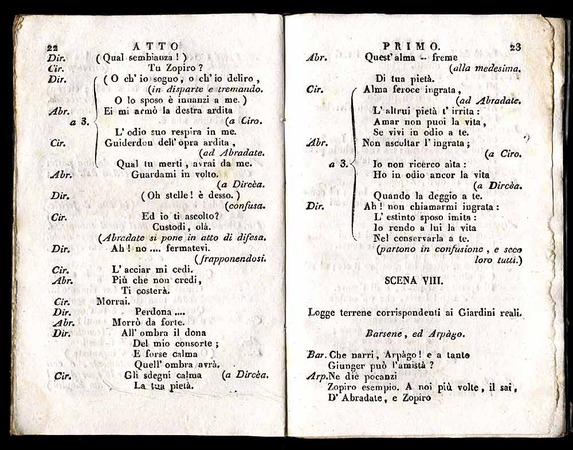 22 ATTO
Dir. (Qual sembianza!)
Cir. Tu Zopiro?
Dir. (O ch'io sogno, o ch'io deliro,
(in disparte e tremando.
O lo sposo è innanzi a me.)
Abr. Ei mi armò la destra ardita
a 3. (a Ciro.
L'odio suo respira in me.
Cir. Guiderdon dell'opra ardita,
(ad Abradate.
Qual tu merti, avrai da me.
Abr. Guardami in volto.
(a Dircèa.
Dir. (Oh stelle! è desso.)
(confusa.
Cir. Ed io ti ascolto?
Custodi, olà.
(Abradate si pone in atto di difesa.
Dir. Ah! no .... fermatevi.
(frapponendosi.
Cir. L'acciar mi cedi.
Abr. Più che non credi,
Ti costerà.
Cir. Morrai.
Dir. Perdona ....
Abr. Morrò da forte.
Dir. All'ombra il dona
Del mio consorte;
E forse calma
Quell'ombra avrà.
Cir. Gli sdegni calma (a Dircèa.
La tua pietà.
PRIMO. 23
Abr. Quest'alma - freme
(alla medesima.
Di tua pietà.
Cir. Alma feroce ingrata,
(ad Abradate.
L'altrui pietà t'irrita:
Amar non puoi la vita,
Se vivi in odio a te.
Abr. Non ascoltar l'ingrata;
(a Ciro.
a 3. Io non ricerco aita:
Ho in odio ancor la vita
(a Dircèa.
Quando la deggio a te.
Dir. Ah! non chiamarmi ingrata:
L'estinto sposo imita:
Io rendo a lui la vita
Nel conservarla a te.
(partono in confusione, e seco
loro tutti.)
SCENA VIII.
Logge terrene corrispondenti ai Giardini reali.
Barsene, ed Arpàgo.
Bar. Che narri, Arpàgo! e a tanto
Giunger può l'amistà?
Arp. Ne diè pocanzi
Zopiro esempio. A noi più volte, il sai,
D'Abradate, e Zopiro